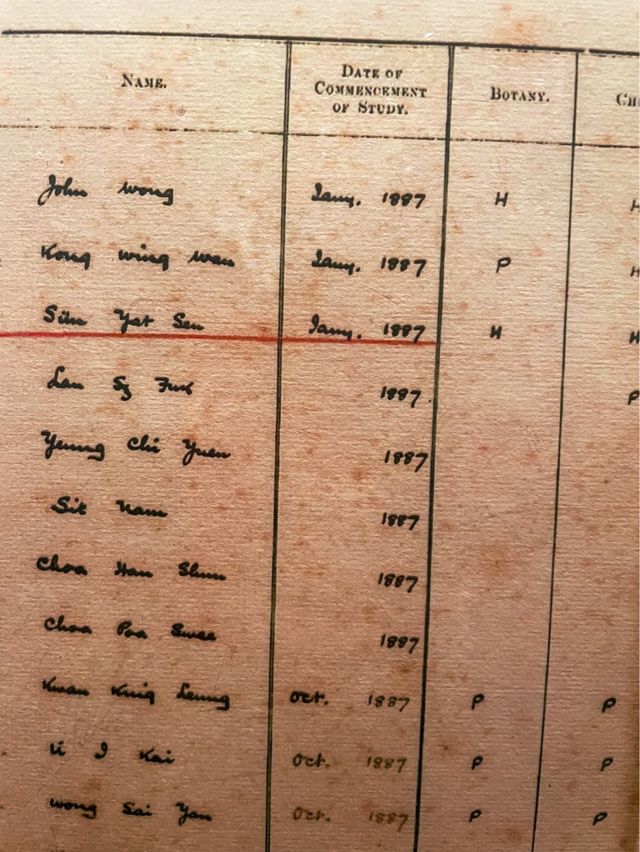 NAME. DATE OF COMMENCEMENT OF STUDY. BOTANY. CH
John Wong Jany. 1887 H H
Kong Wing Wan Jany. 1887 P H
Sün Yat Sen Jany. 1887 H H
Lau Sz Fuk 1887. P
Yeung Chi Yuen 1887
Sit Nam 1887
Choa Han Shun 1887
Choa Poa Swee 1887
Kwan King Leung Oct. 1887 P P
U I Kai Oct. 1887 P P
Wong Sai Yan Oct. 1887 P P